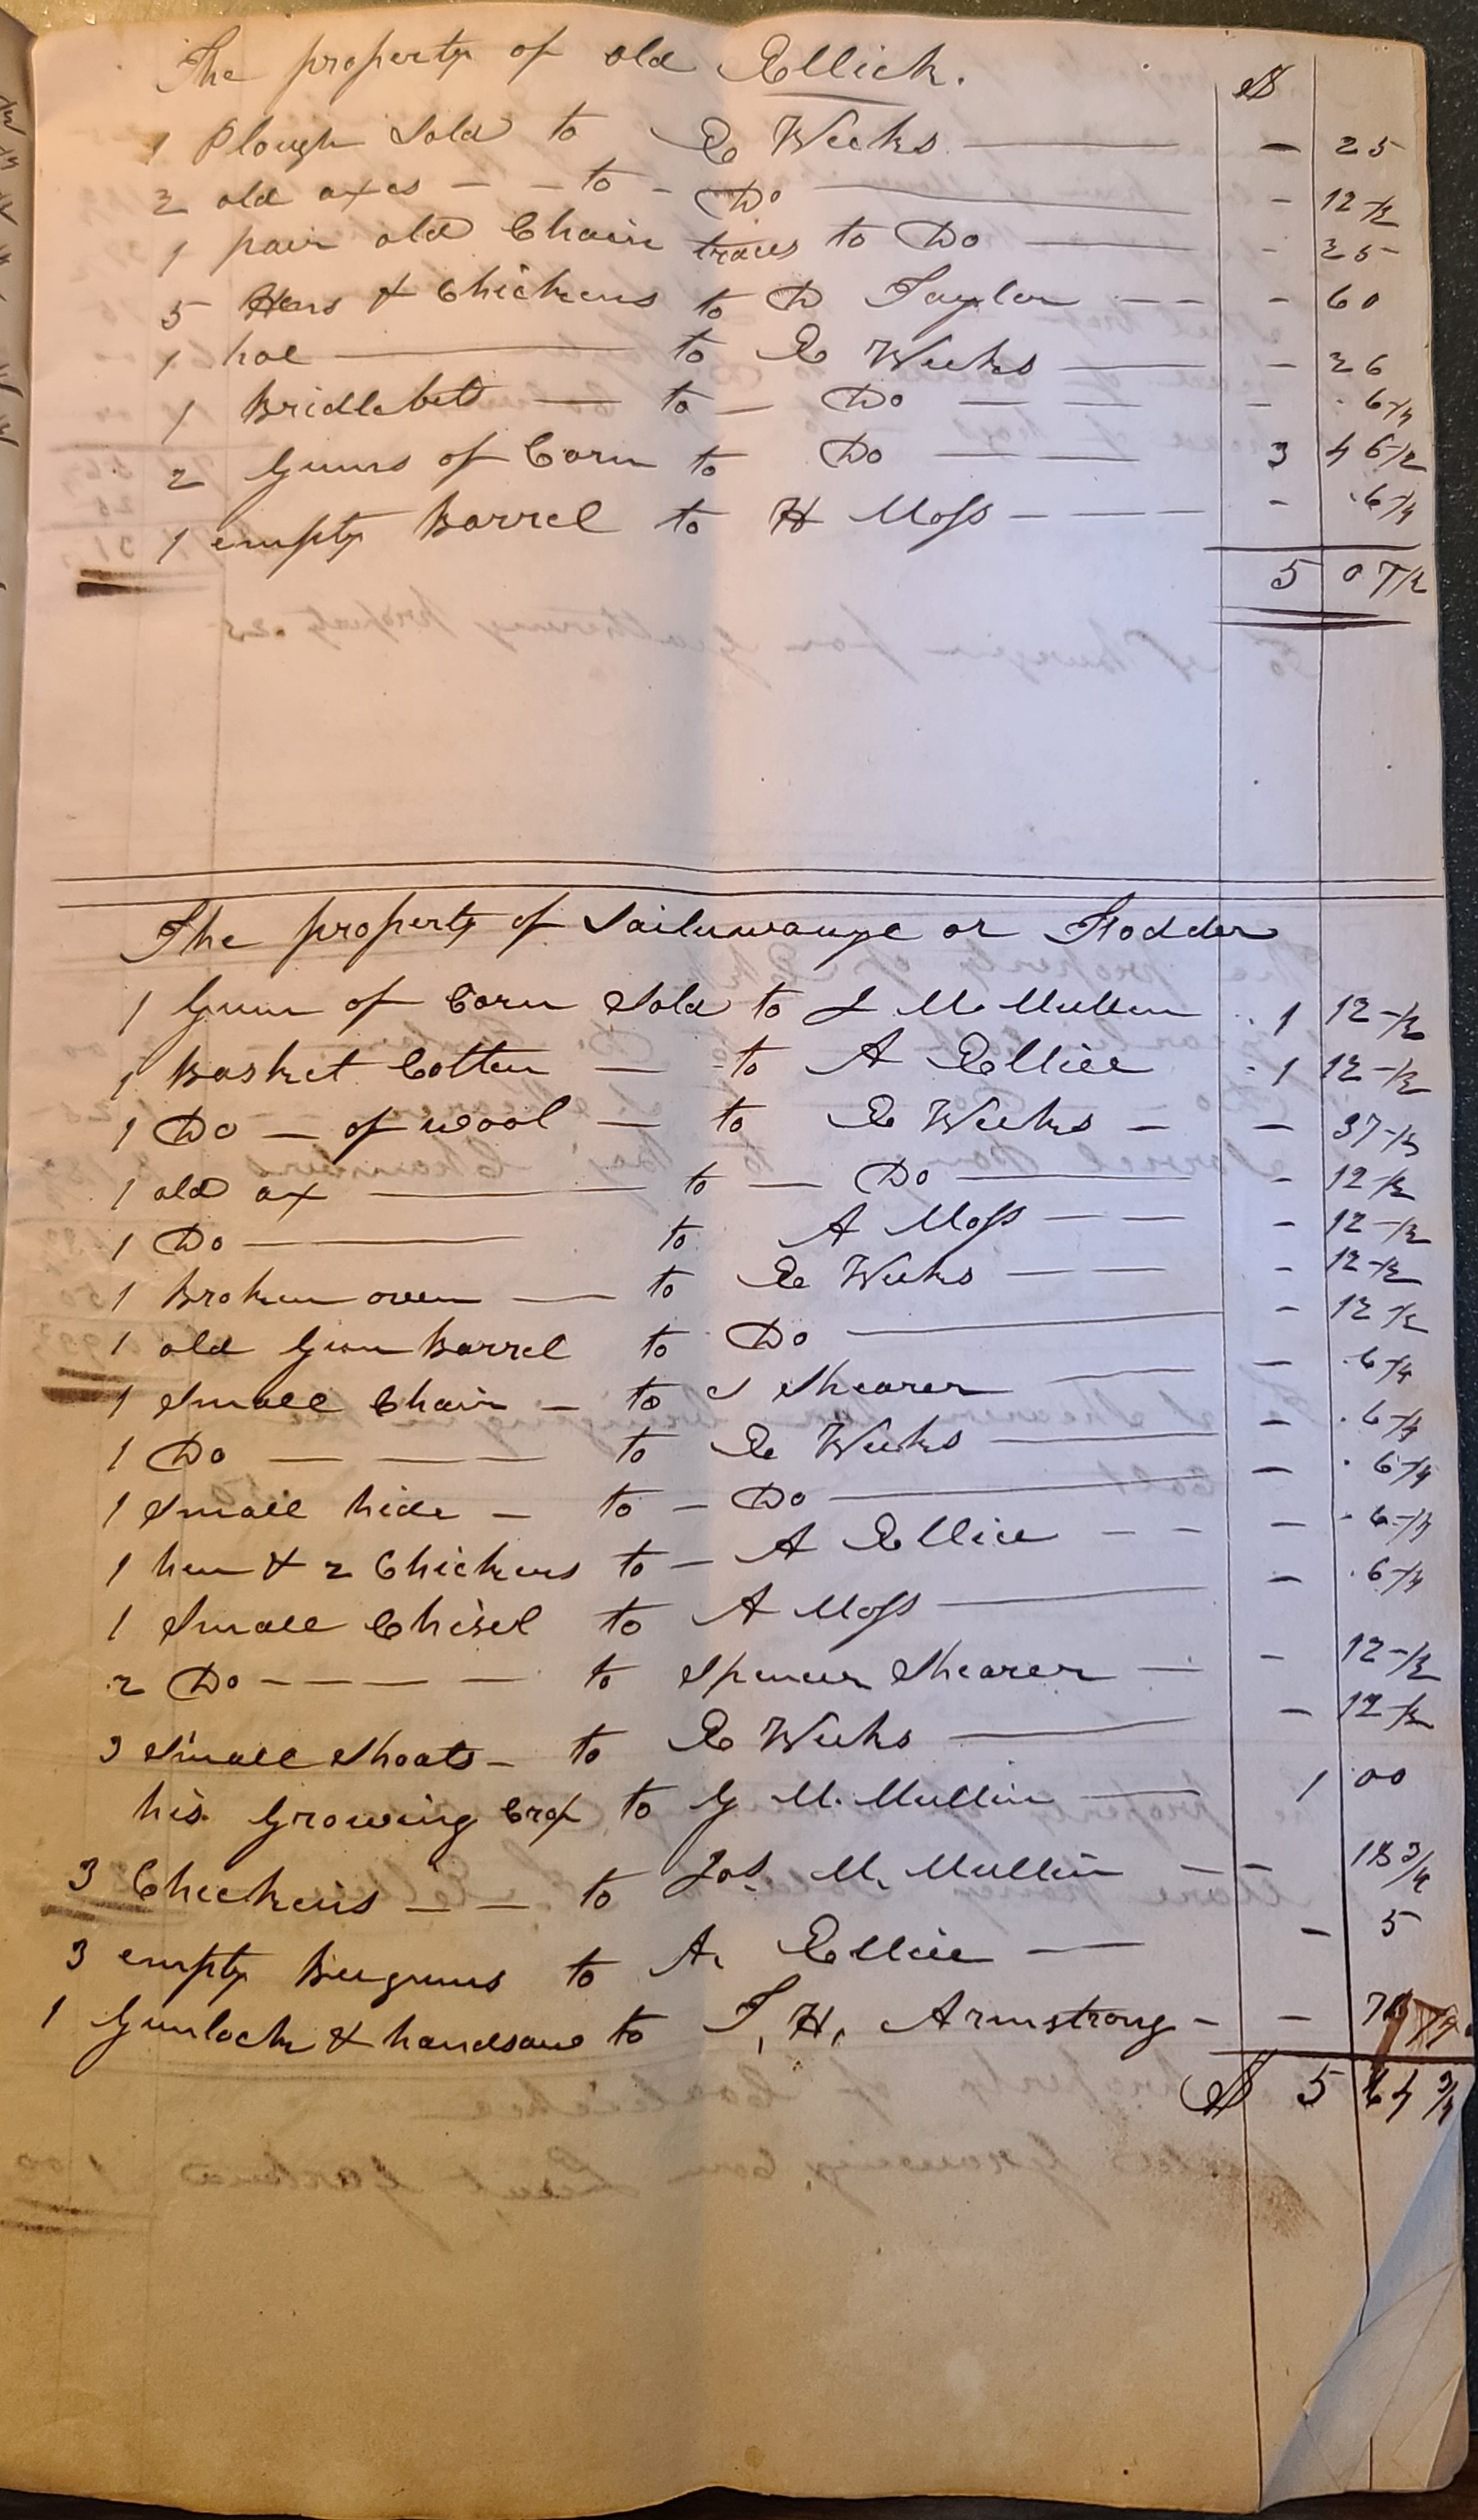 The property of old Ellick. $
1 Plough Sold to E Weeks — - 25
2 old axes - - to - Do — - 12 1/2
1 pair old Chain traces to Do — - 25
5 Hens & Chickens to D Taylor - - - 60
1 hoe — to E Weeks — - 26
1 Bridlebitt — to — Do — — - 6 1/4
2 Gums of Corn to Do — — 3 46 1/2
1 empty Barrel to H Moss - — — - 6 1/4
5 07 1/2
The property of or Fodder
1 Gum of Corn Sold to J McMullin 1 12 1/2
1 Basket Cotten — to A Ellice 1 12 1/2
1 Do — of wool — to E Weeks — - 37 1/2
1 old ax — to — Do — - 12 1/2
1 Do — to A Moss — — - 12 1/2
1 Broken oven — to E Weeks — — - 12 1/2
1 old Gun Barrel to Do — - 12 1/2
1 Small Chain — to S Shearer — - 6 1/4
1 Do — — — to E Weeks — - 6 1/4
1 Small hide — to - Do — - 6 1/4
1 hen & 2 Chickens to - A Ellice - - - 6 1/4
1 Small Chisel to A Moss — - 6 1/4
2 Do - — — — to Spencer Shearer — - 12 1/2
3 Small Shoats - to E Weeks — - 12 1/2
his Growing Crop to G McMullin — 1 00
3 Chickens — — to Jas. McMullin — - 18 3/4
3 empty Beegums to A. Ellice — - 5
1 Gunlock & handsaw to T. H. Armstrong - -
$ 5 64 3/4